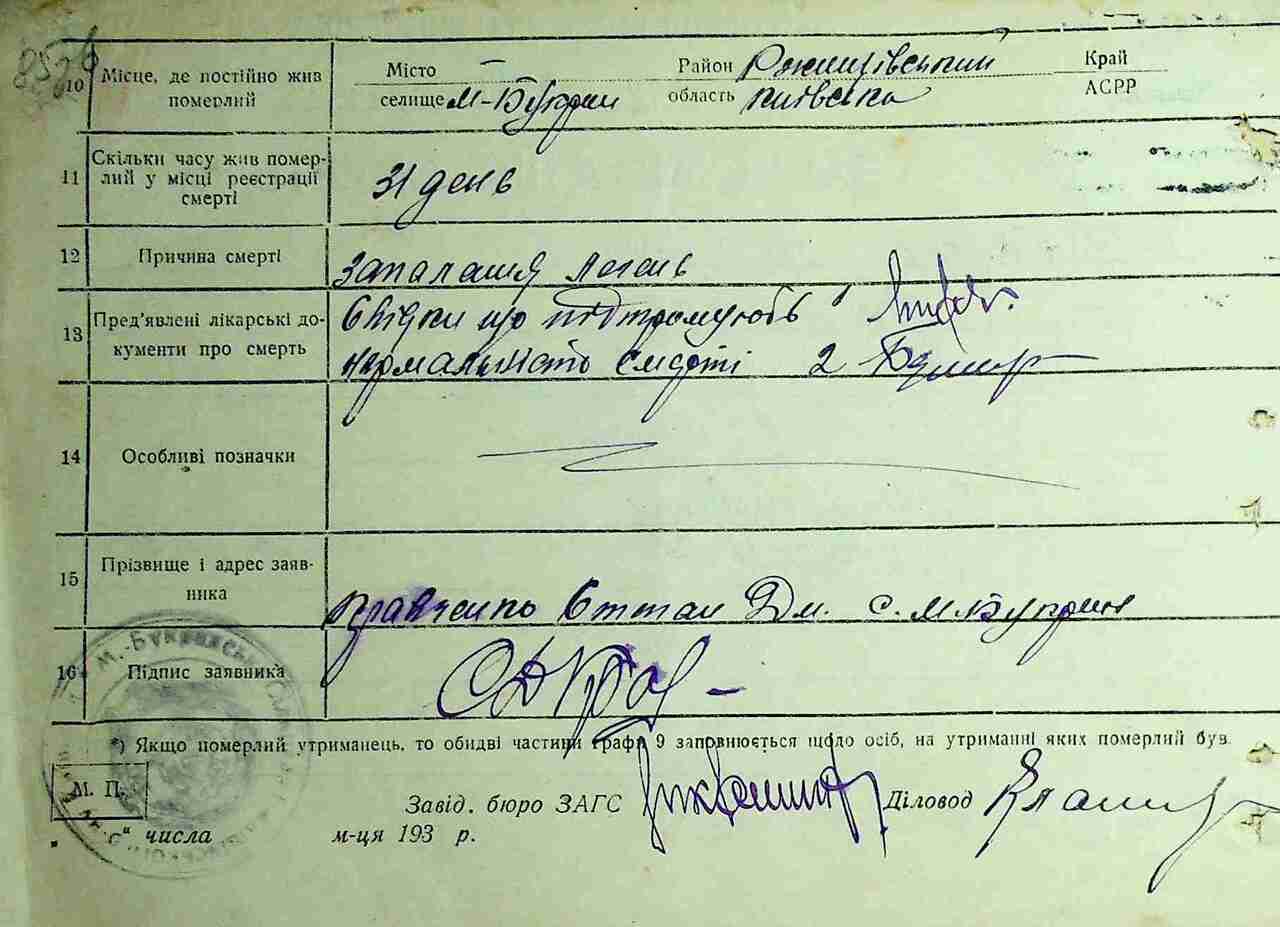 10 Місце, де постійно жив Місто — Район Ржищівський Край
померлий селище М-Букрин область Київська АСРР
11 Скільки часу жив помер-
лий у місці реєстрації
смерті 31 день
12 Причина смерті Запалання легень
13 Пред'явлені лікарські до- Свідки що підтримують 1
кументи про смерть нормальність смерті 2
14 Особливі позначки
15 Прізвище і адрес заяв-
ника Кравченко Степан Дм. с. М-Букрин
16 Підпис заявника СДКрав
*) Якщо померлий утриманець, то обидві частини графи 9 заповнюється щодо осіб, на утриманні яких померлий був.
М. П. Завід. бюро ЗАГС Діловод
„ “ числа м-ця 193 р.